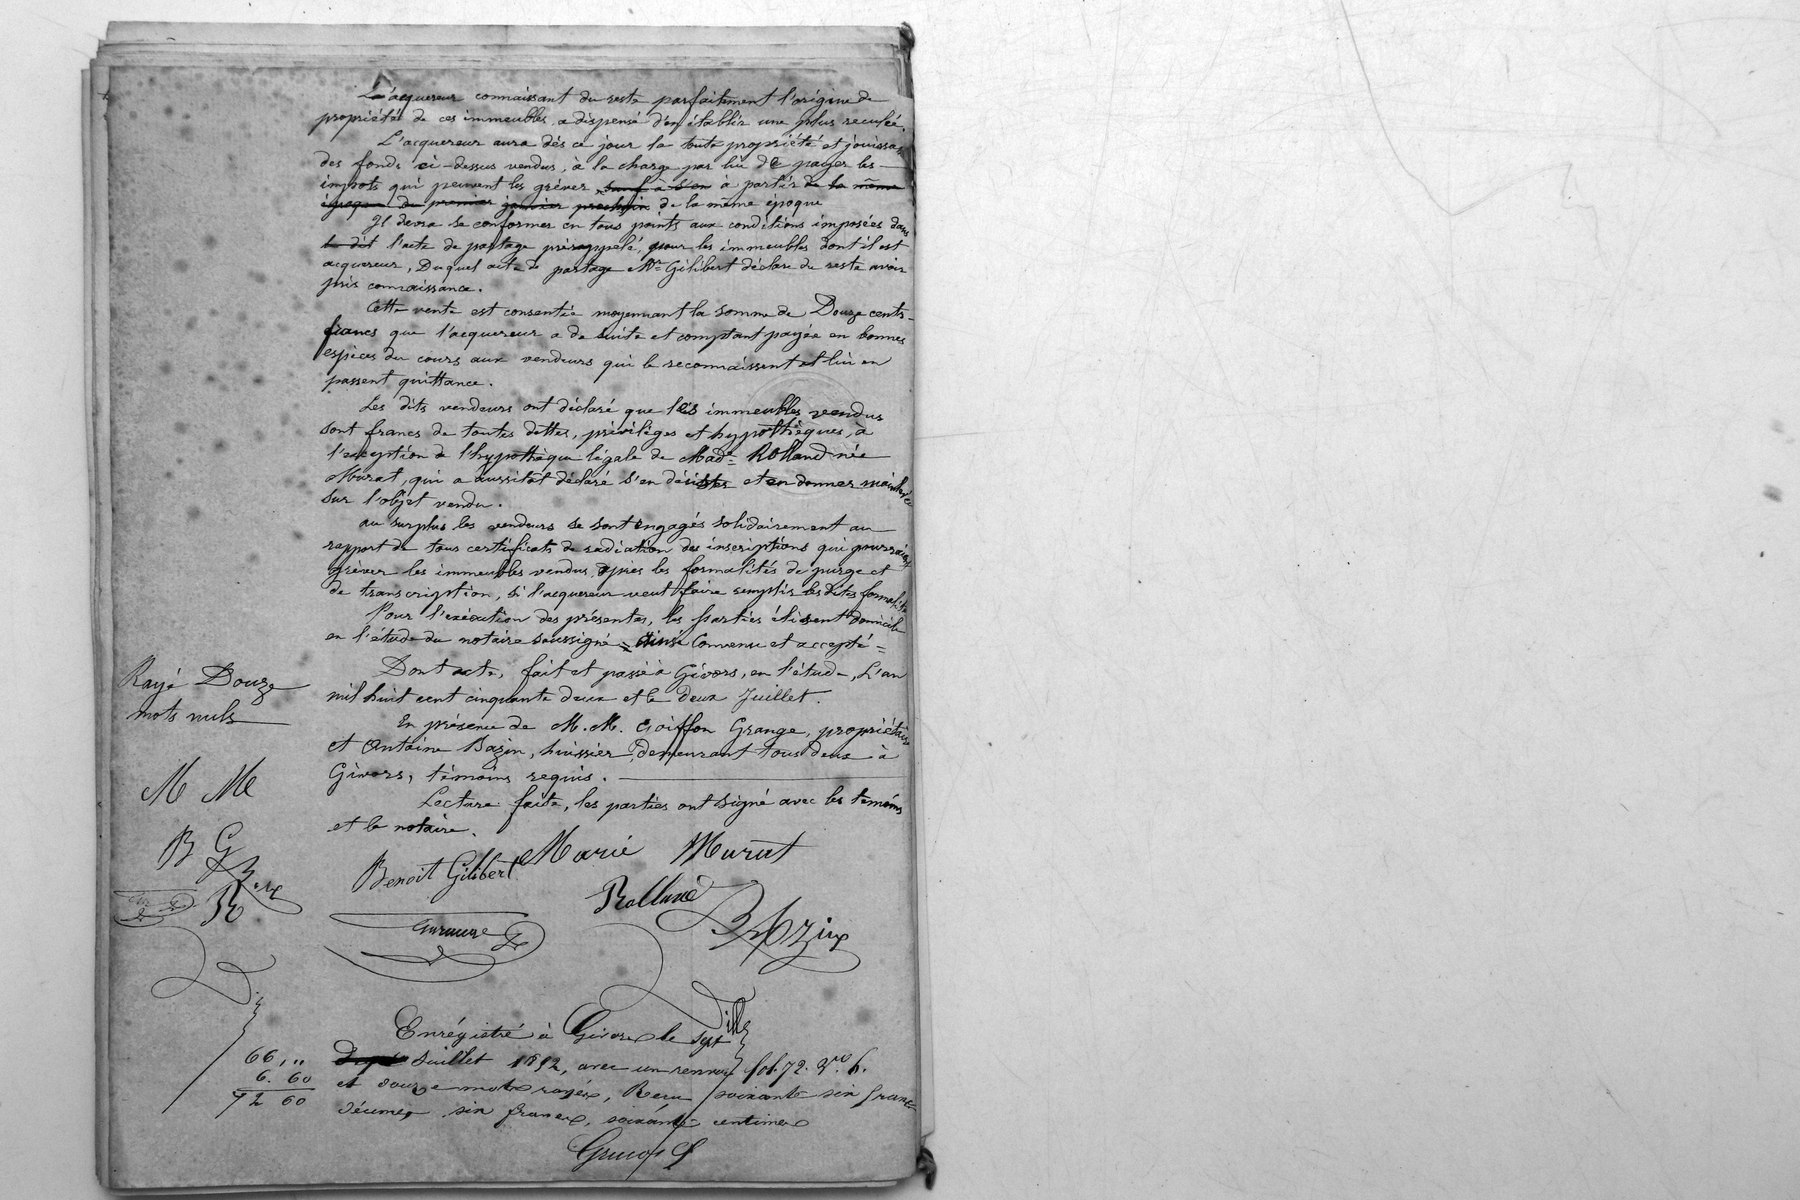 L'acquereur connaissant du reste parfaitement l'origine de
propriété de ces immeubles, a dispensé d'en établir une plus reculée.
L'acquereur aura dès ce jour la toute propriété et jouissan
des fonds ci-dessus vendus, à la charge par lui de payer les
impots qui peuvent les gréver, sauf à s'en à partir de la même
époque du premier janvier prochain de la même époque
Il devra se conformer en tous points aux conditions imposées dans
le dit l'acte de partage prérappelé, pour les immeubles dont il est
acquereur, Duquel acte de partage Mr Gilibert déclare du reste avoir
pris connaissance.
Cette vente est consentie moyennant la somme de Douze cents
francs que l'acquereur a de suite et comptant payée en bonnes
espèces du cours aux vendeurs qui le reconnaissent et lui en
passent quittance.
Les dits vendeurs ont déclaré que les immeubles vendus
sont francs de toutes dettes, privilèges et hypothèques, à
l'exception de l'hypothèque légale de Made Rolland née
Murat, qui a aussitôt déclaré s'en désister et en donner mainlevée
sur l'objet vendu.
au surplus les vendeurs se sont engagés solidairement au
rapport de tous certificats de radiation des inscriptions qui pourraient
gréver les immeubles vendus, après les formalités de purge et
de transcription, si l'acquereur veut faire remplir les dites formalités
Pour l'exécution des présentes, les parties élisent domicile
en l'étude du notaire soussigné = Ainsi Convenu et accepté =
Dont acte, fait et passé à Givors, en l'étude, L'an
mil huit cent cinquante deux et le deux Juillet.
Rayé Douze
mots nuls
En présence de M.M. Goiffon Grange, propriétaire
et Antoine Bazin, huissier, demeurant tous deux à
Givors, témoins requis.
Lecture faite, les parties ont signé avec les témoins
et le notaire.
M M
B G
R
Benoit Gilibert Marie Murat
Rolland
BAzin
Enrégistré à Givors le sept
Juillet 1852, avec un renvoi fol. 72. Vo. 6.
et douze mots rayés, Reçu soixante six francs
décimes six francs, soixante centimes
66 "
6. 60
72 60